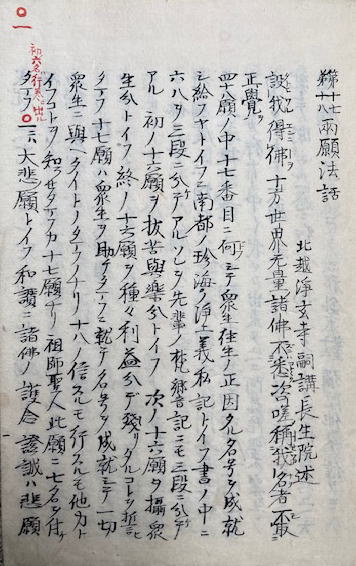 第十七十八兩願法話
北越淨玄寺嗣講長生院述
設我得佛十方世界无量諸佛不悉咨嗟稱我名者不取
正覺
四十八願ノ中十七番目ニ何シテ衆生往生ノ正因タル名号ヲ成就
シ給フヤトイフニ南都ノ珍海ノ淨土義私記トイフ書ノ中ニ
六八ヲ三段ニ分テアルソレヲ先輩ノ梵響音記ニモ三段ニ分ケテ
アル初ノ十六願ヲ拔苦與楽分トイフ次ノ十六願ヲ攝衆
生分トイフ終ノ十六願ヲ種々利益分
十七願ハ衆生ヲ助ケタマフニ就テ名号ヲ成就シテ一切
衆生ニ與ヘタマフ
イフコトヲ知ラセタマフカ十七願ナリ祖師聖人此願ニ七名ヲ付ケ
タマフ一ニハ大悲願トイフ和讃ニ諸佛ノ護念證誠ハ悲願
初六名行巻出